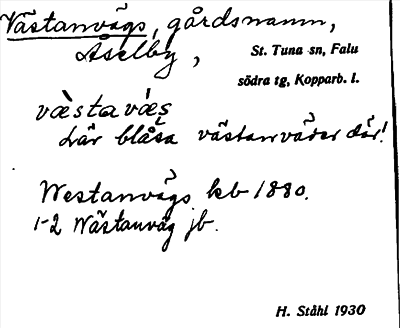 Västanvägs, gårdsnamn,
Åselby, St. Tuna sn, Falu
södra tg, Kopparb. l.
vàsta vàgs
Här blåsa västanväder där!
Westanvägs kb 1880.
1-2 Wästanväg jb.
H. Ståhl 1930